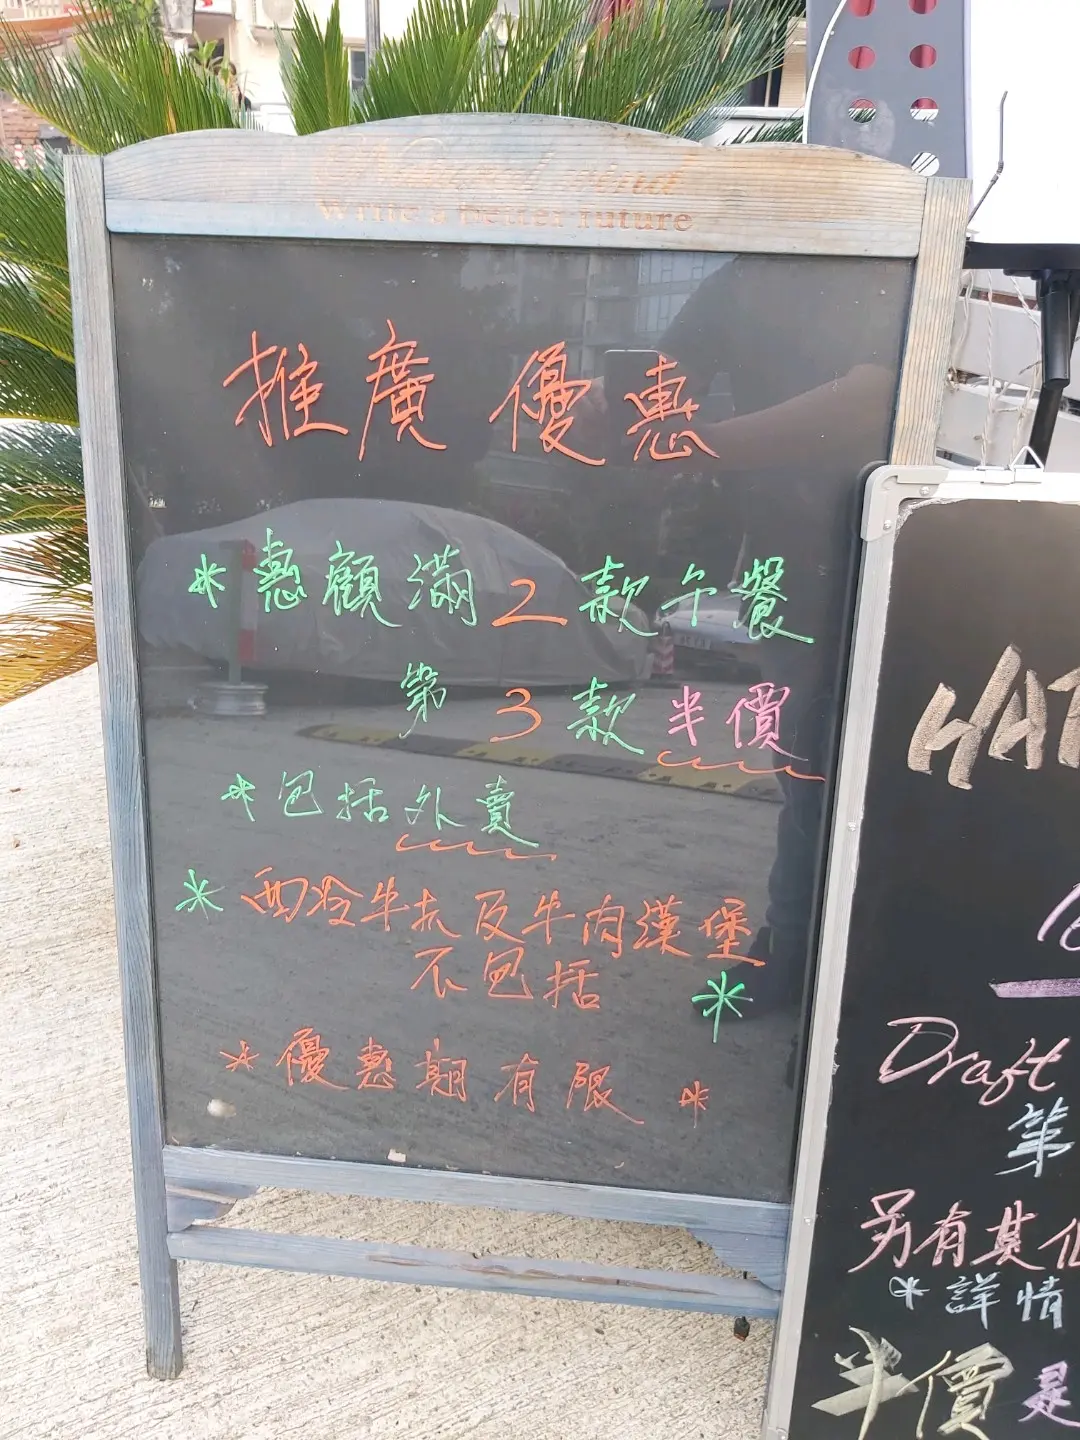 Write a better future
推廣優惠
* 惠顧滿2款午餐
第3款半價
* 包括外賣
* 西冷牛扒及牛肉漢堡
不包括 *
* 優惠期有限 *
HA
Draft
第
另有其他
* 詳情
半價是